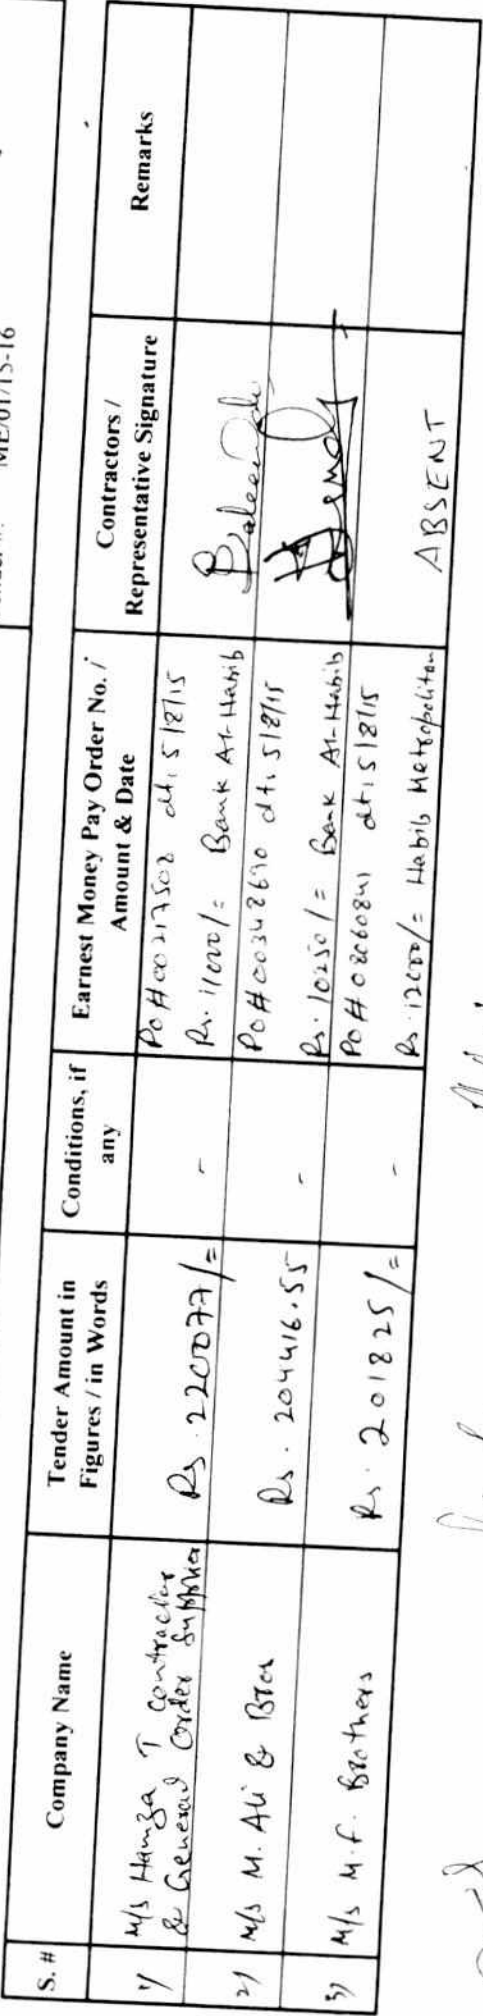 ME/01/15-16
S. #
Company Name
Tender Amount in
Figures / in Words
Conditions, if
any
Earnest Money Pay Order No. /
Amount & Date
Contractors /
Representative Signature
Remarks
1/
M/s Hamza T Contractor
& General Order Supplier
Rs. 220077/=
-
PO # 00217502 dt. 5/8/15
Rs. 11000/= Bank Al-Habib
2/
M/s M. Ali & Bros
Rs. 204416.55
-
PO # 00348670 dt. 5/8/15
Rs. 10250/= Bank Al-Habib
3/
M/s M.F. Brothers
Rs. 201825/=
-
PO # 02060841 dt. 5/8/15
Rs. 12000/= Habib Metropolitan
ABSENT